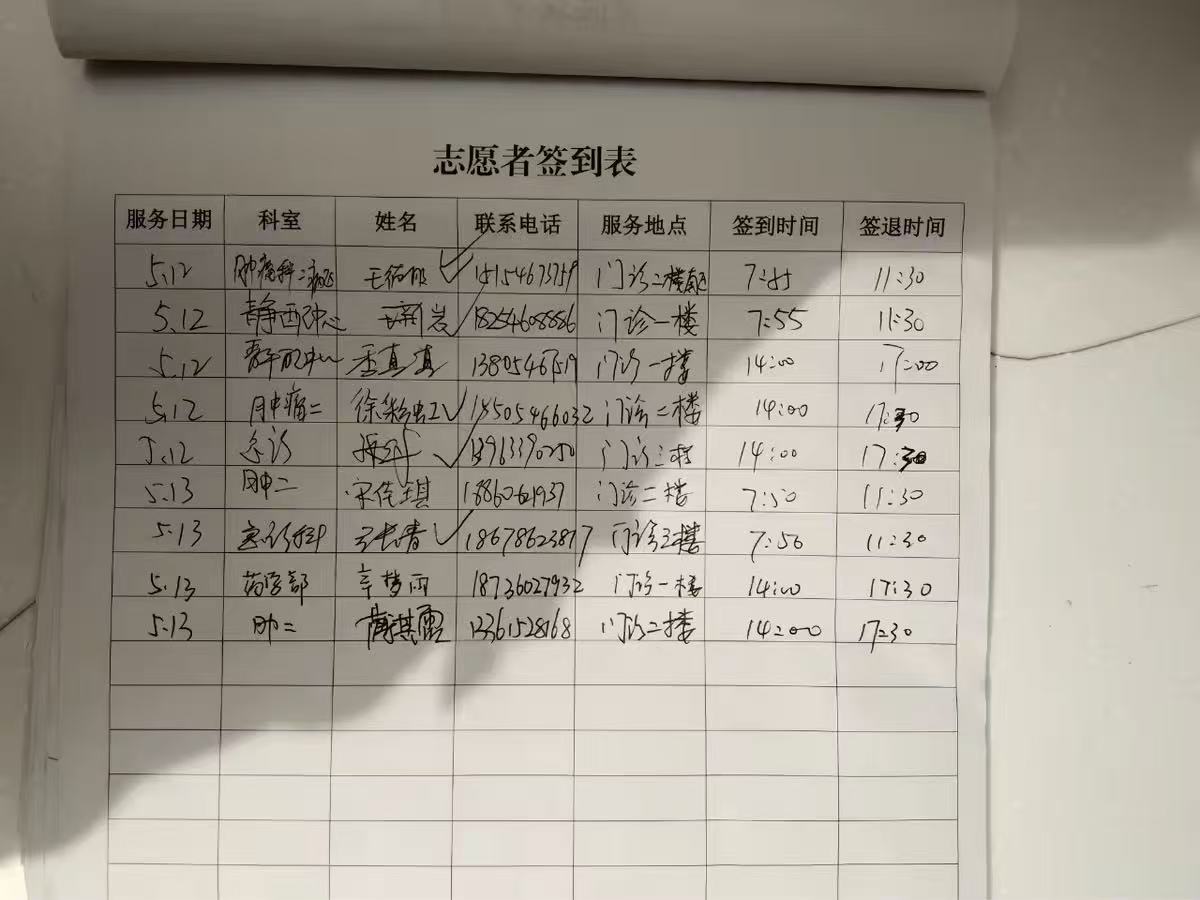 志愿者签到表
服务日期 科室 姓名 联系电话 服务地点 签到时间 签退时间
5.12 肿瘤科二病区 15154673759 门诊二楼 11:30
5.12 静西中心 18254608886 门诊一楼 7:55 11:30
5.12 静配中心 季真真 门诊一楼 14:00 17:00
5.12 肿瘤二 徐彩虹 门诊二楼 14:00 17:30
5.12 急诊 13963390250 门诊三楼 14:00 17:30
5.13 肿二 宋佳琪 门诊二楼 7:50 11:30
5.13 急诊科 18678623817 门诊三楼 7:50 11:30
5.13 药学部 辛梦雨 18736027932 门诊一楼 14:00 17:30
5.13 肿二 13361528168 门诊二楼 14:00 17:30